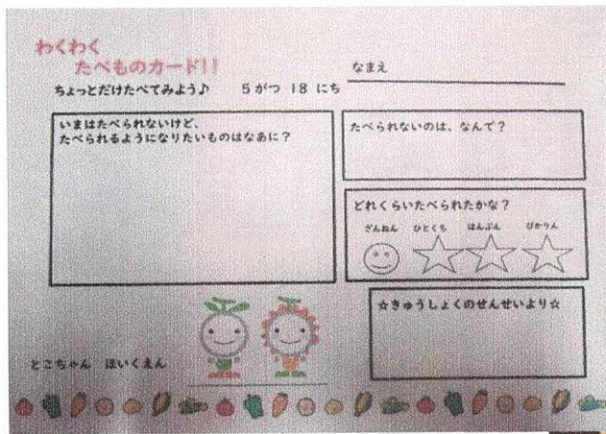 わくわく
たべものカード!!
なまえ
ちょっとだけたべてみよう♪ 5がつ 18 にち
いまはたべられないけど、
たべられるようになりたいものはなあに？
たべられないのは、なんで？
どれくらいたべられたかな？
ざんねん ひとくち はんぶん ぴかりん
☆きゅうしょくのせんせいより☆
とこちゃん ほいくえん